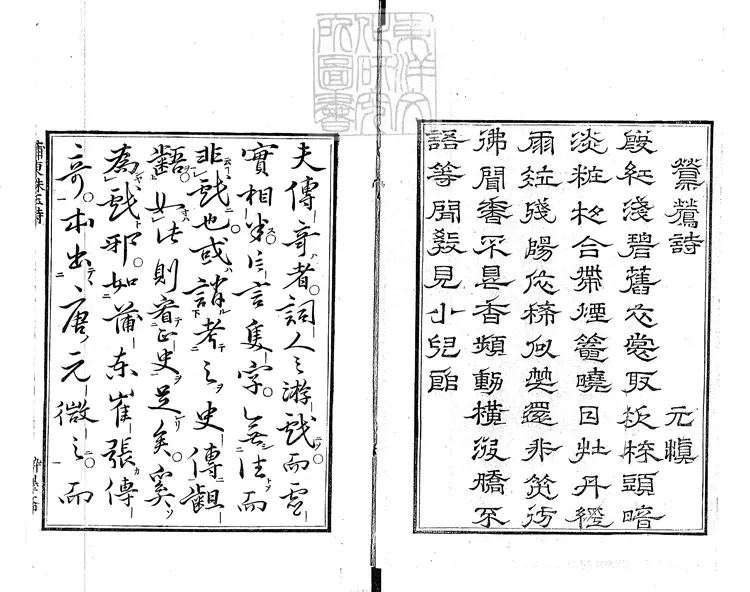 鶯鶯詩 元稹
殷紅淺碧舊衣裳取次梳頭暗
淡粧夜合帶煙籠曉日牡丹經
雨泣殘陽依稀似笑還非笑彷
彿聞香不是香頻動橫波嬌不
語等閒教見小兒郎
夫傳奇者詞人之游戲而虛
實相半片言隻字無法而
非戲也或諸考之史傳齟
齬如法則看正史足矣奚
為戲邪如蒲東崔張傳
奇本出唐元微之而
蒲東珠玉詩
東洋文化研究所圖書